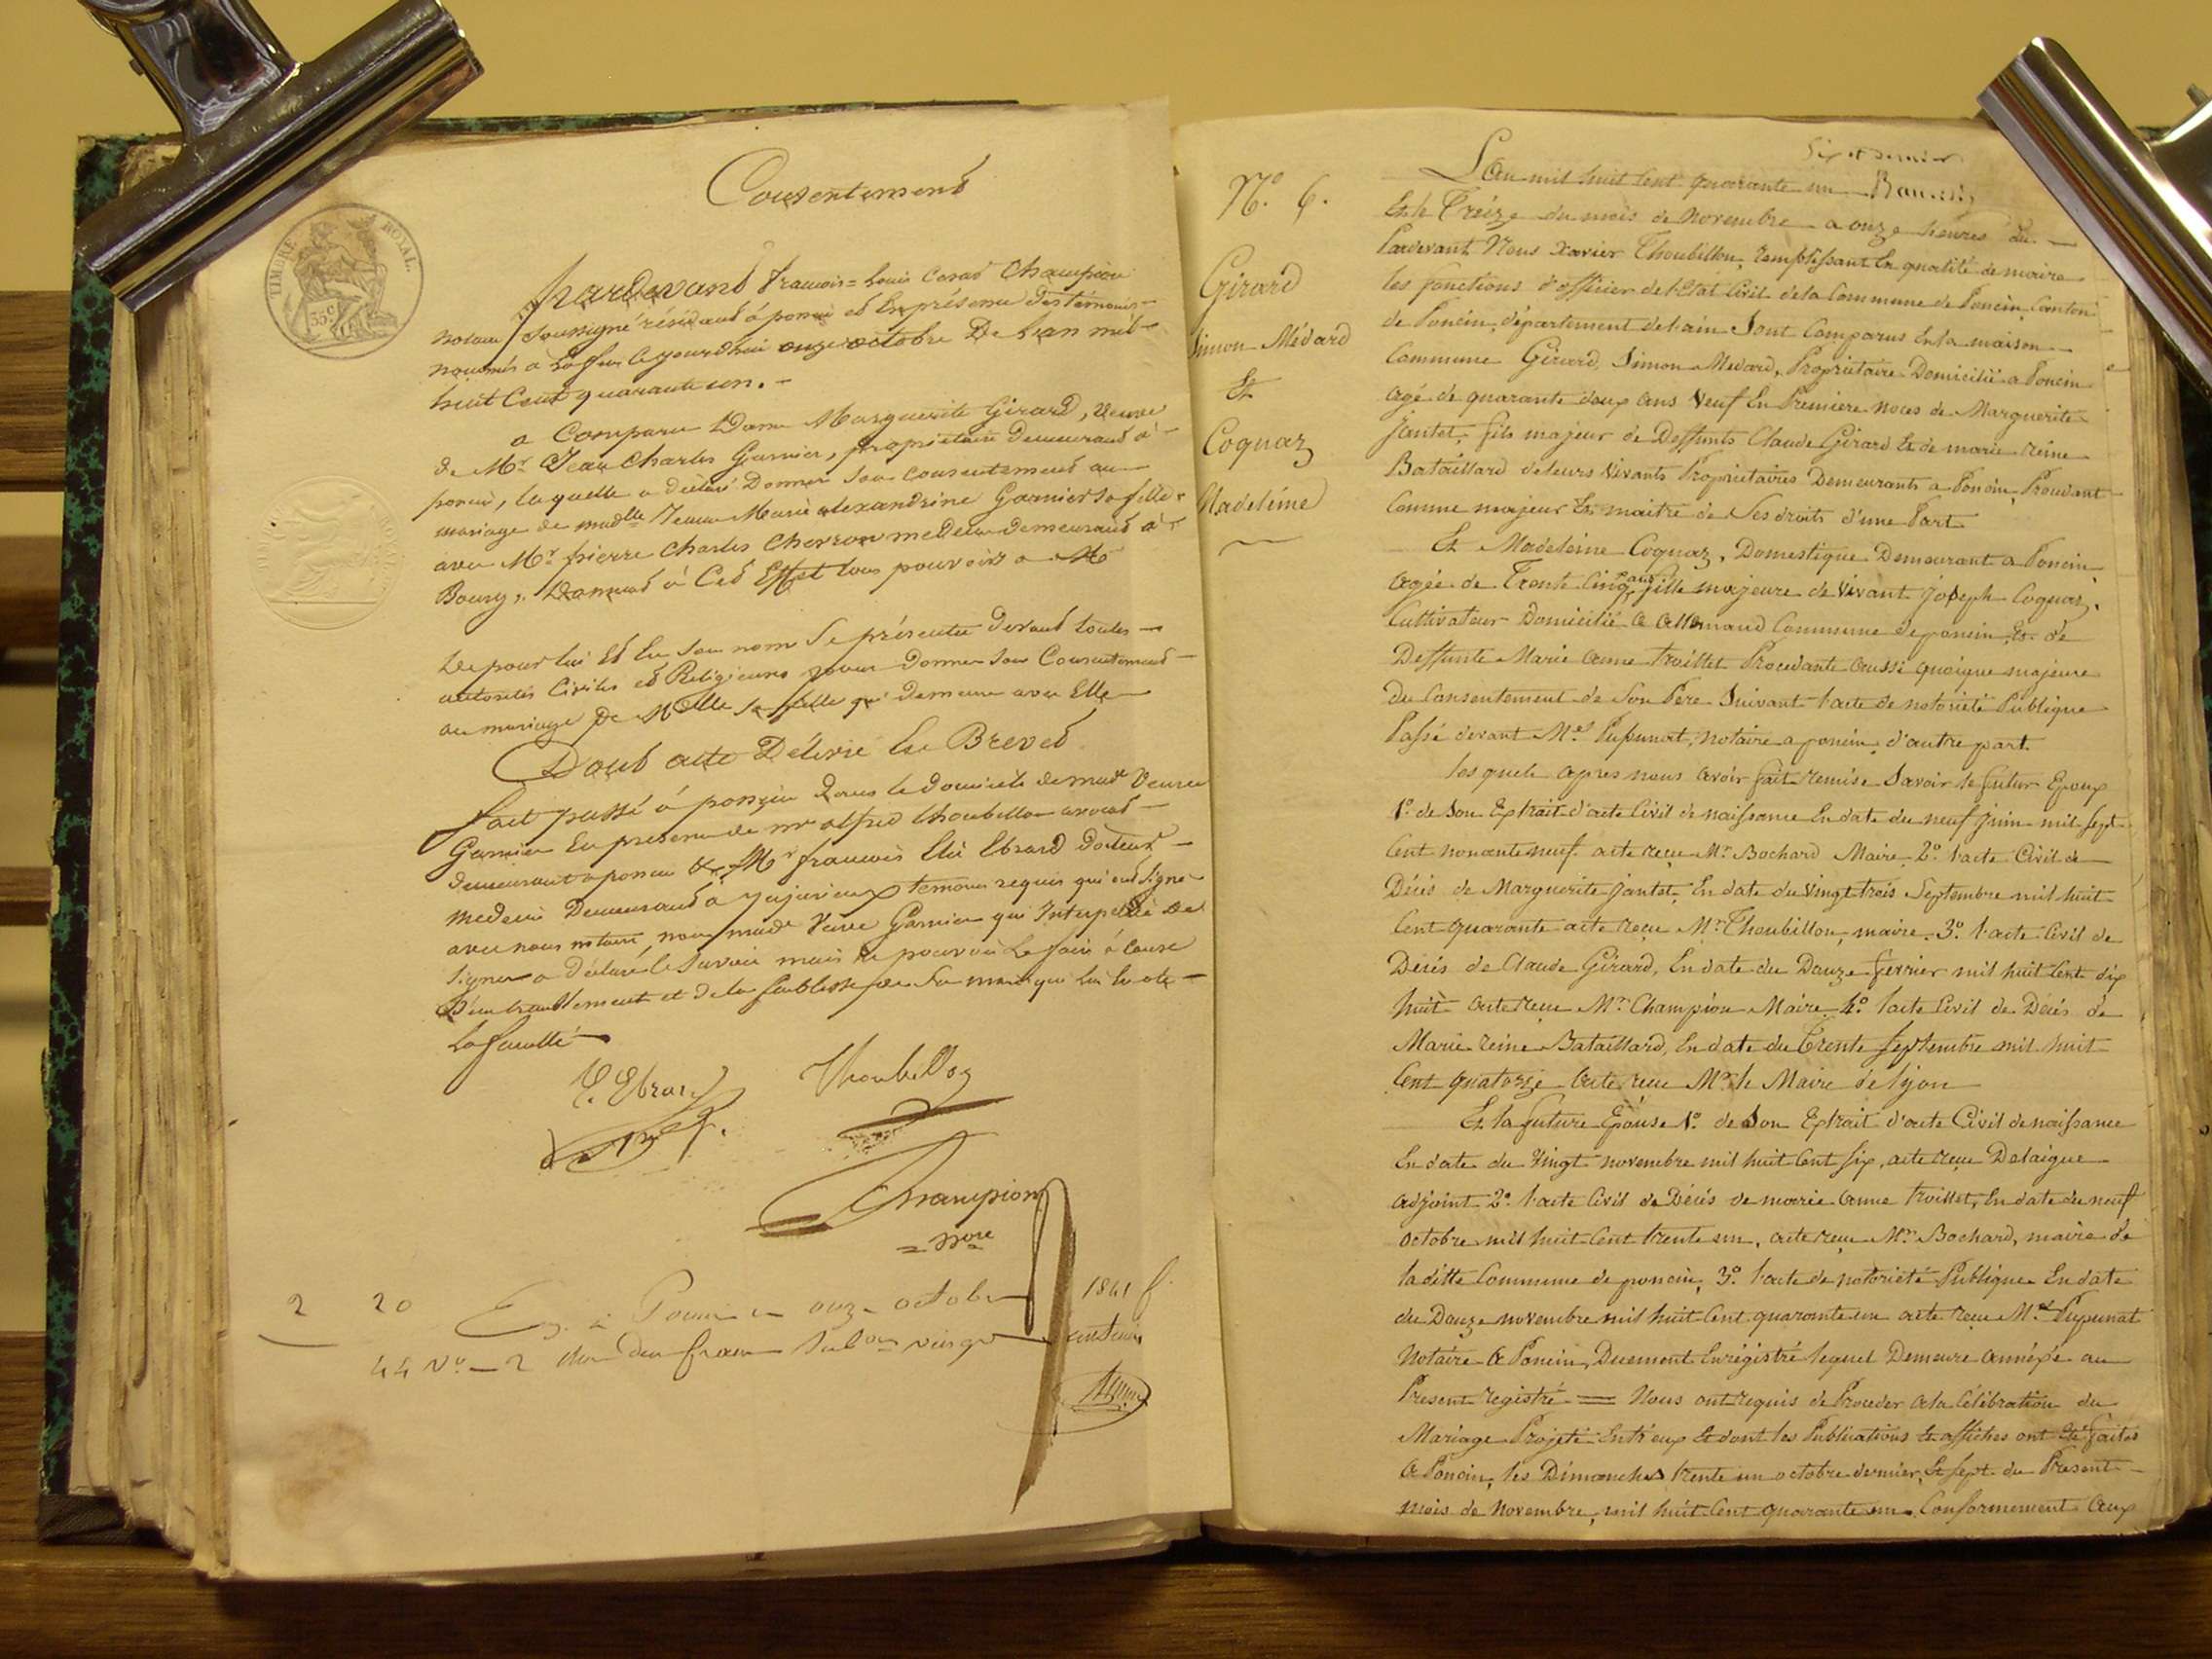 Consentement
TIMBRE ROYAL.
35c
Pardevant françois=Louis César Champion
notaire soussigné résidant à poncin et En présence des témoins
nommés a La fin ce jourdhui onze octobre De L'an mil
huit Cent quarante un.
a Comparu Dame Marguerite Girard, veuve
de Mr Jean Charles Garnier, propriétaire Demeurant à
poncin, laquelle a déclaré Donner son consentement au
mariage de madlle Marie alexandrine Garnier sa fille
avec Mr pierre Charles Chevron medecin demeurant à
Bourg, Donnant à Cet Effet tous pouvoirs a Mr
De pour lui Et En son nom Se présenter devant toutes
autorités Civiles et Religieuses pour Donner son Consentement
au mariage de Melle sa fille qui demeure avec Elle
Dont acte Délivré En Brevet
fait passé à poncin dans le domicile de made Veuve
Garnier En présence de mr alfred thoubillon avocat
demeurant a poncin & Mr françois Ebrard docteur
medecin Demeurant à jujurieux temoins requis qui ont signé
avec nous notaire, non made Veuve Garnier qui Interpellée de
signer a déclaré le savoir mais ne pouvoir Le faire à cause
D'un tremblement et de la faiblesse de sa main qui lui en ote
La faculté
E. Ebrard
Thoubillon
Champion
= Nore
2 20 Eg. à Poncin le onze octobre 1841 f.
44 Vo 2 deux francs vingt centimes
Six et dernier
N.o 6.
Girard
Simon Médard
Et
Coquaz
Madeleine
L'an mil huit Cent quarante un
Et le Treize du mois de Novembre a onze heures du
Pardevant Nous Xavier Thoubillon, remplissant En qualité de maire
les fonctions d'officier de l'Etat Civil de la Commune de Poncin, Canton
de Poncin, département de l'ain Sont Comparus En la maison
Commune Girard, Simon Medard, Propriétaire Domicilié a Poncin
agé de quarante deux ans Veuf En Premiere noces de Marguerite
Jantet, fils majeur de Deffunts Claude Girard Et de marie reine
Bataillard de leurs Vivants Propriétaires Demeurants a Poncin, Procédant
Comme majeur Et maitre de Ses droits d'une Part
Et Madeleine Coquaz, Domestique Demeurant a Poncin
agée de Trente Cinq ans fille majeure de Vivant Joseph Coquaz,
Cultivateur Domicilié a allemand Commune de poncin, Et de
Deffunte Marie anne troillet Procedante aussi quoique majeure
du Consentement de Son Pere Suivant l'acte de notoriété Publique
Passé devant Me Pupunat, notaire a poncin, d'autre part.
lesquels apres nous avoir fait remise Savoir le futur Epoux
1o de Son Extrait d'acte Civil de naissance En date du neuf Juin mil sept
Cent nonante neuf acte reçu Mr Bochard Maire 2o l'acte Civil de
Décès de Marguerite Jantet, En date du Vingt trois Septembre mil huit
Cent quarante acte reçu Mr Thoubillon, maire. 3o l'acte Civil de
Décès de Claude Girard, En date du Douze fevrier mil huit Cent dix
huit acte reçu Mr Champion Maire 4o l'acte Civil de Décès de
Marie reine Bataillard, En date du Trente septembre mil huit
Cent quatorze acte reçu Mr le Maire de lyon
Et la future Epouse 1o de Son Extrait d'acte Civil de naissance
En date du Vingt novembre mil huit Cent six, acte reçu Delaigue
adjoint 2o l'acte Civil de Décès de marie anne troillet, En date du neuf
octobre mil huit Cent trente un, acte reçu Mr Bochard, maire de
la ditte Commune de poncin, 3o l'acte de notoriété Publique En date
du Douze novembre mil huit Cent quarante un acte reçu Me Pupunat
Notaire a Poncin, Duement Enrégistré lequel Demeure annéxé au
Present registre = Nous ont requis de Proceder a la Célébration du
Mariage Projeté Entr'eux Et dont les Publications Et affiches ont Eté faites
a Poncin, les Dimanches trente un octobre dernier, Et sept du Present
mois de Novembre, mil huit Cent quarante un. Conformement aux